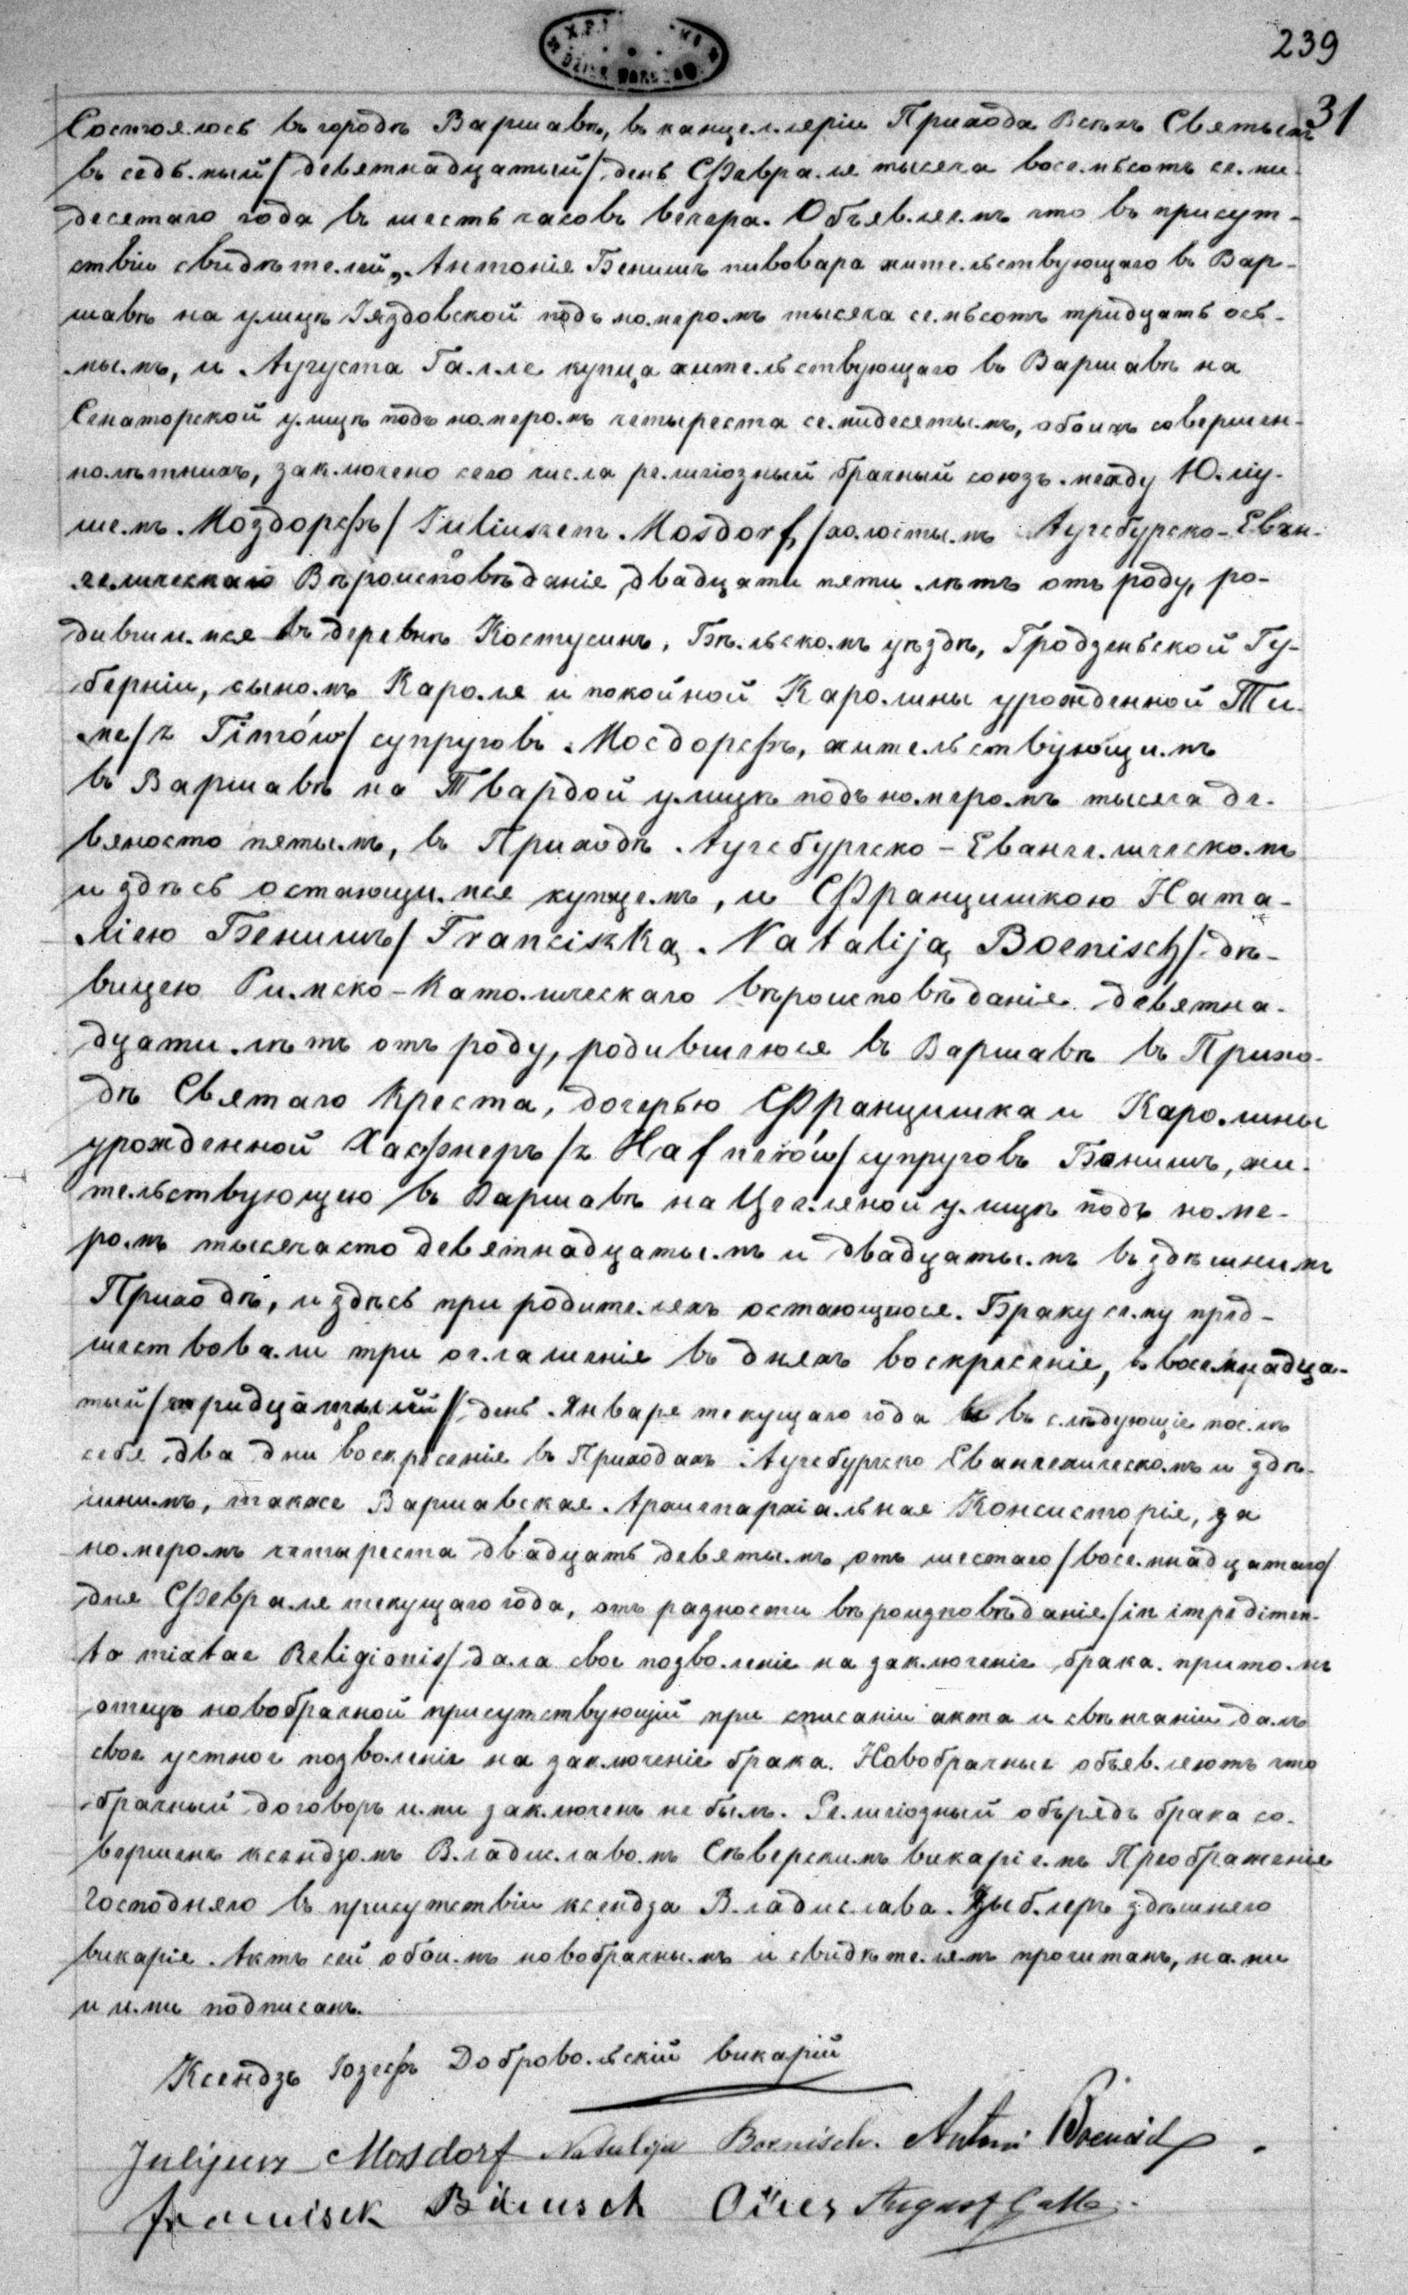 239
31
Состоялось въ городѣ Варшавѣ, въ канцелляріи Прихода Всѣхъ Святыхъ
въ седьмый/девятнадцатый/день Февраля тысяча восемьсотъ семи-
десетаго года въ шесть часовъ вечера. Объявляемъ что въ присут-
ствіи свидѣтелей, Антонія Бенишъ пивовара жительствующаго въ Вар-
шавѣ на улицѣ Уяздовской подъ номеромъ тысяча семьсотъ тридцать ось-
мымъ, и Августа Галле купца жительствующаго въ Варшавѣ на
Сенаторской улицѣ подъ номеромъ четыреста семидесетымъ, обоихъ совершен-
нолѣтнихъ, заключено сего числа религіозный брачный союзъ между Юліу-
шемъ Моздорфъ/Juliuszem Mosdorf,/холостымъ Аугсбурско-Еван-
гелическаго Вѣроисповѣданія, двадцати пяти лѣтъ отъ роду, ро-
дившимся въ деревнѣ Костусинъ, Бѣльскомъ уѣздѣ, Гродзенской Гу-
берніи, сыномъ Кароля и покойной Каролины урожденной Ти-
ме/z Timów/супруговъ Мосдорфъ, жительствующимъ
въ Варшавѣ на Твардой улицѣ подъ номеромъ тысяча де-
вяносто пятымъ, въ Приходѣ Аугсбургско-Евангелическомъ
и здѣсь остающимся купцемъ, и Францишкою Ната-
ліею Бенишъ/Franciszką Nataliją Boenisch/дѣ-
вицею Римско-Католическаго вѣроисповѣданія девятна-
дцати лѣтъ отъ роду, родившеюся въ Варшавѣ въ Прихо-
дѣ Святаго Креста, дочерью Францишка и Каролины
урожденной Хафнеръ/z Hafnerów/супруговъ Бенишъ, жи-
тельствующею въ Варшавѣ на Цегляной улицѣ подъ номе-
ромъ тысячасто девятнадцатымъ и двадцатымъ въ здѣшнимъ
Приходѣ, и здѣсь при родителяхъ остающеюся. Браку сему пред-
шествовали три оглашенія въ дняхъ воскресенія, въ восемнадца-
тый/тридцатый/день Января текущаго года и въ слѣдующіе послѣ
себя два дни воскресенія въ Приходахъ Аугсбурско Евангелическомъ и здѣ-
шнимъ, также Варшавская Архиепархіальная Консисторія, за
номеромъ четыреста двадцать девятымъ, отъ шестаго/восемнадцатаго/
дня Февраля текущаго года, отъ разности вѣроизповѣданія/in impedimen-
to mixtae Religionis/дала свое позволеніе на заключеніе брака. притомъ
отецъ новобрачной присутствующій при списаніи акта и свѣнчаніи далъ
свое устное позволеніе на заключеніе брака. Новобрачные объявляютъ что
брачный договоръ ими заключенъ не былъ. Религіозный обърядъ брака со-
вершенъ ксендзомъ Владиславомъ Сѣверскимъ викаріемъ Преображенія
Господняго въ присутствіи ксендза Владислава здѣшняго
викарія. Актъ сей обоимъ новобрачнымъ и свидѣтелямъ прочитанъ, нами
и ими подписанъ.
Ксендзъ Іозефъ Добровольскій викарій
Julijusz Mosdorf Natalija Boenisch. Antoni Boenisch
Franciszek Bönisch Oiciec August Galle